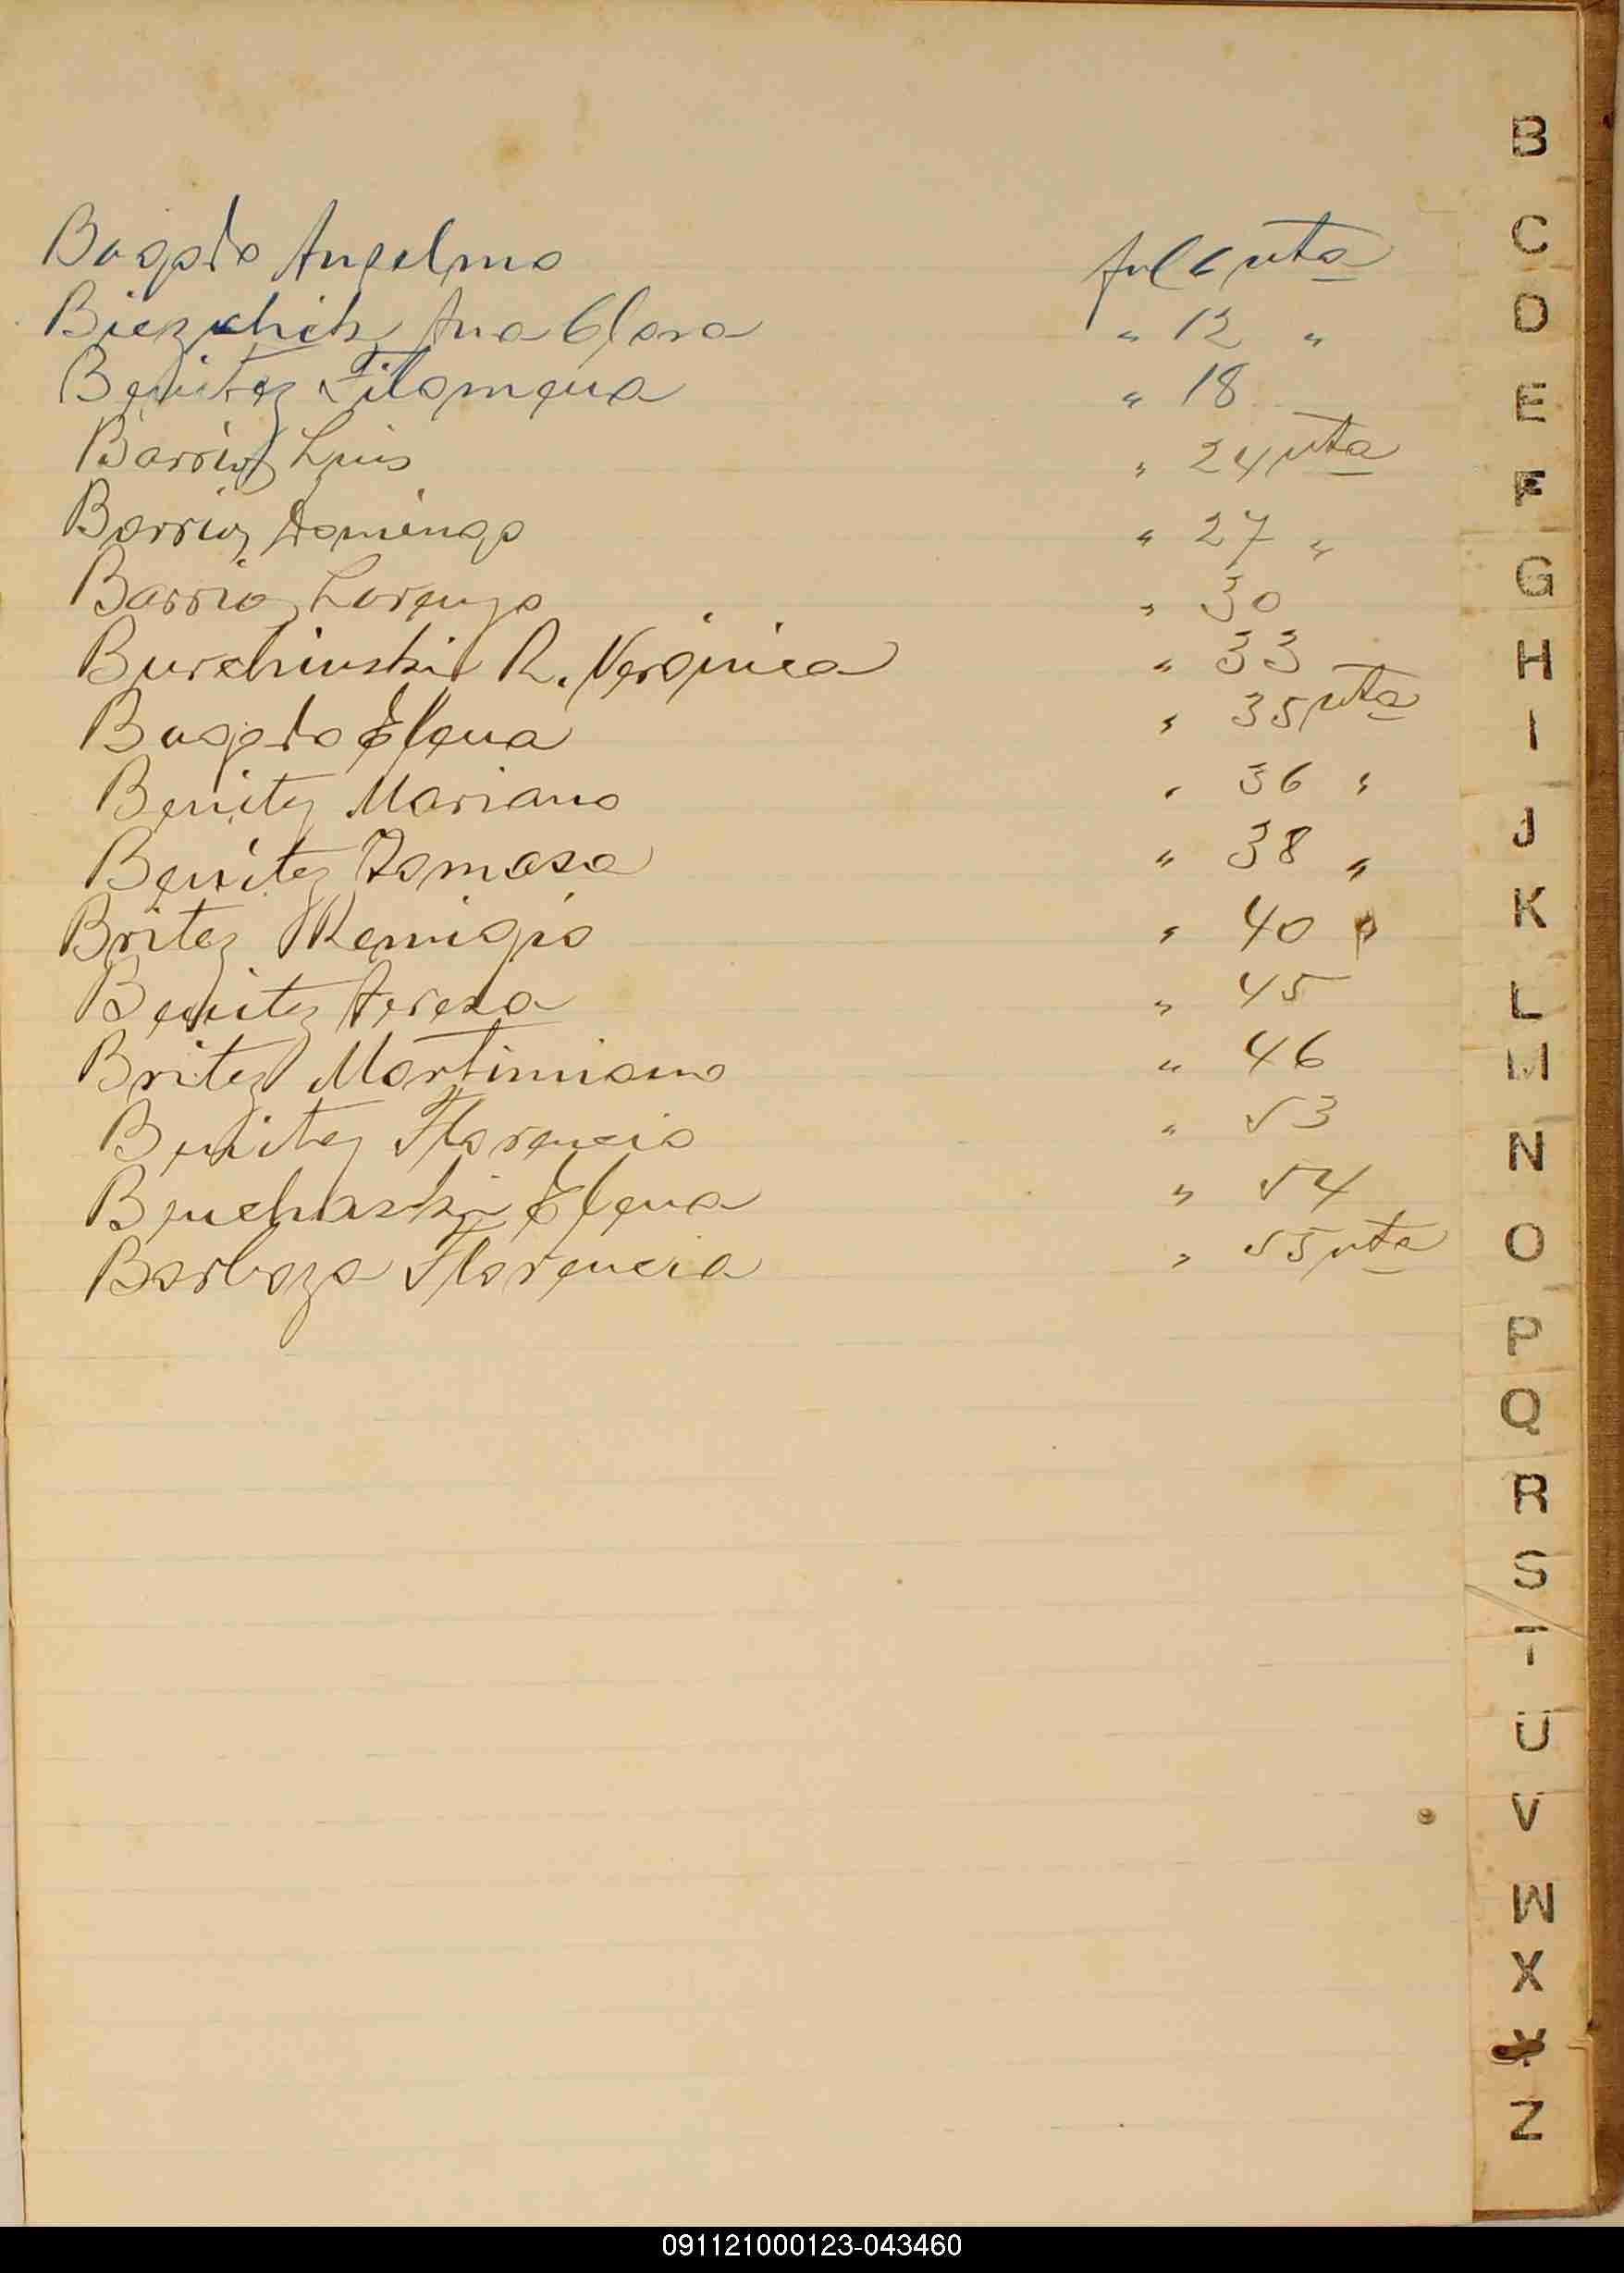 Bogado Anselmo fol 6 vta
Biezuhich Ana Clara " 12 "
Benitez Filomena " 18
Barrioz Luis " 24 vta
Barrioz Domingo " 27 "
Barrioz Lorenzo " 30
Burchinski R. Veronica " 33
Bogado Elena " 35 vta
Benitez Mariano " 36 "
Benitez Tomasa " 38 "
Britez Remigio " 40
Benitez Teresa " 45
Britez Martimiano " 46
Benitez Florencio " 53
Elena " 54
Barboza Florencia " 55 vta
B
C
D
E
F
G
H
I
J
K
L
M
N
O
P
Q
R
S
T
U
V
W
X
Y
Z
091121000123-043460